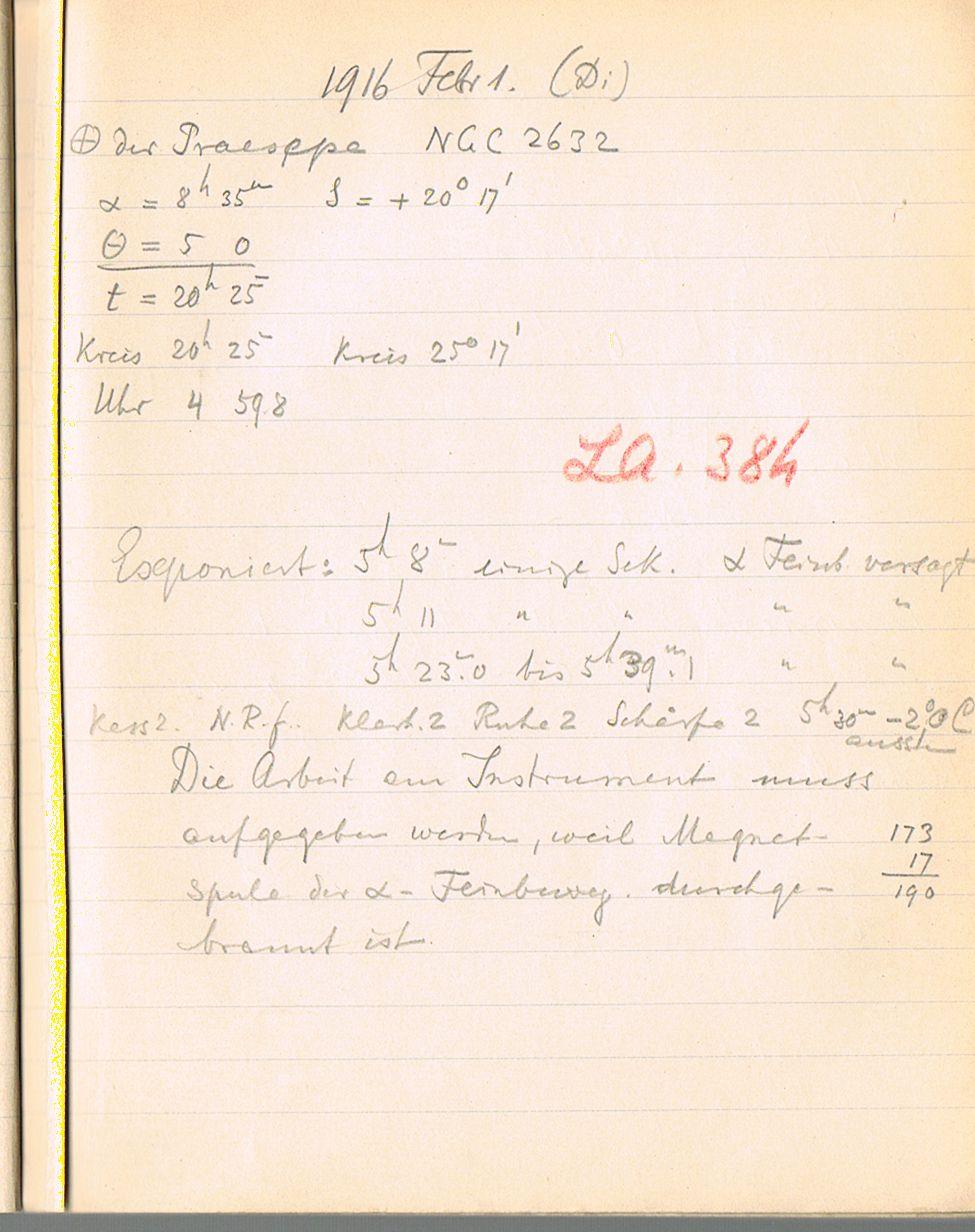 1916 Febr 1. (Di)
⊕ der Praesepe NGC 2632
α = 8h 35m δ = + 20° 17'
Θ = 5 0
t = 20h 25
Kreis 20h 25 Kreis 25° 17'
Uhr 4 59.8
LA. 384
Exponiert: 5h 8m einige Sek. α Feinb. versagt
5h 11 " " " "
5h 23m.0 bis 5h 39m.1 " "
Kass 2. N.R.f. Klarh. 2 Ruhe 2 Schärfe 2 5h 30m -2°.0 C
aussen
Die Arbeit am Instrument muss
aufgegeben werden, weil Magnet- 173
17
spule der α - Feinbeweg. durchge- 190
brannt ist.